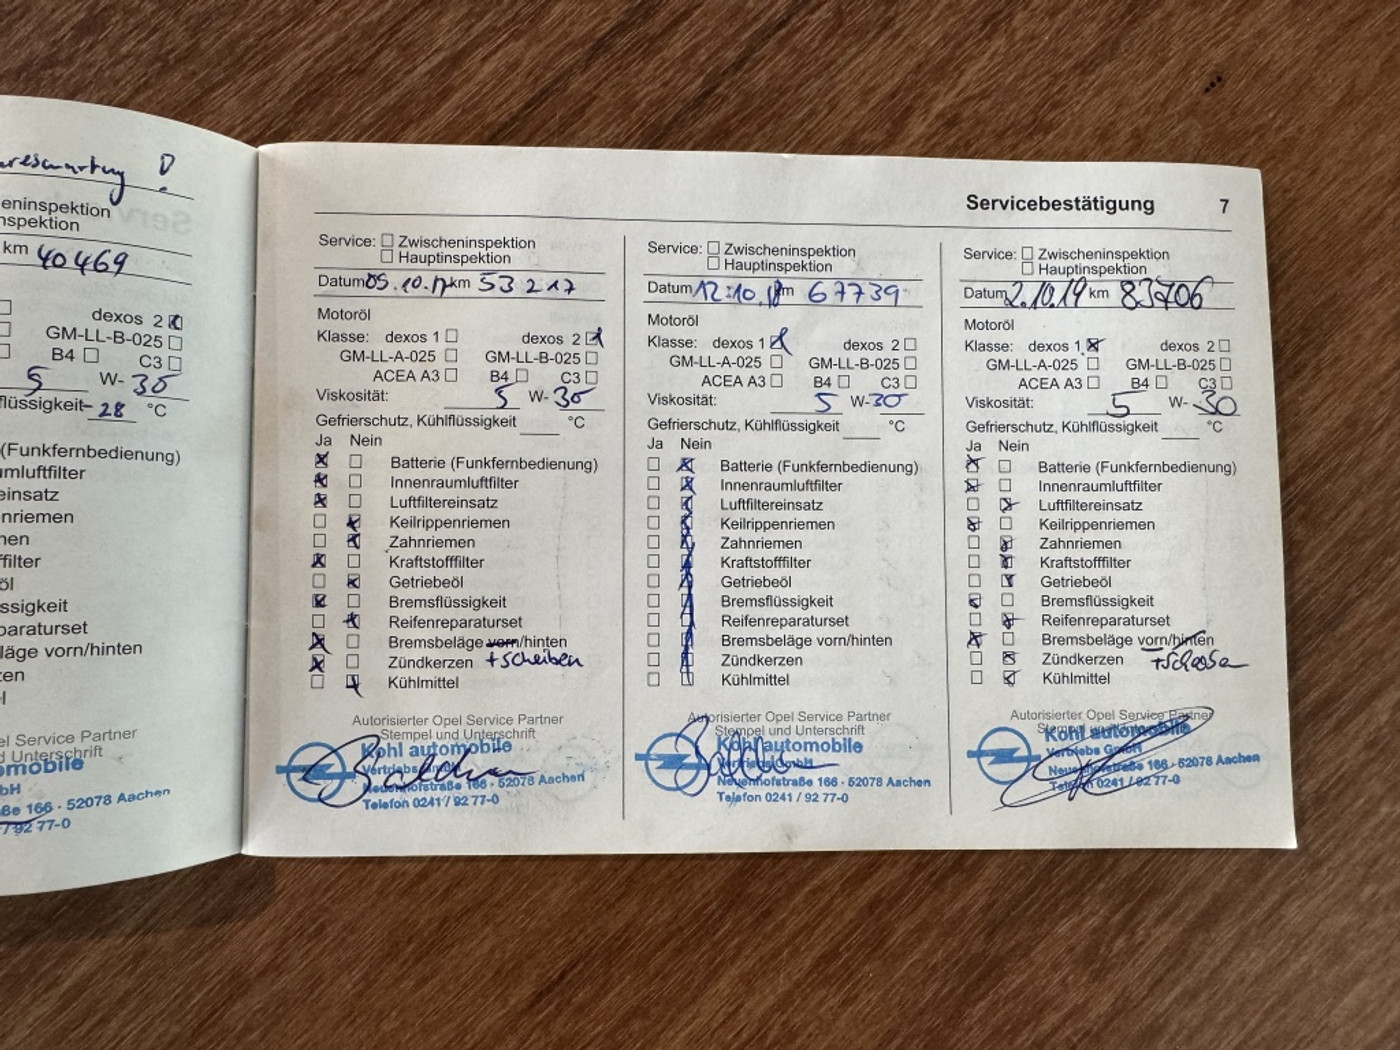 eninspektion
nspektion
km 40469
dexos 2
GM-LL-B-025
B4 C3
5 W-30
flüssigkeit -28 °C
(Funkfernbedienung)
umluftfilter
einsatz
nriemen
nen
filter
öl
ssigkeit
paraturset
läge vorn/hinten
zen
l
el Service Partner
d Unterschrift
omobile
bH
aße 166 · 52078 Aachen
/ 92 77-0
Servicebestätigung 7
Service: Zwischeninspektion
Hauptinspektion
Datum 05.10.17 km 53217
Motoröl
Klasse: dexos 1 dexos 2
GM-LL-A-025 GM-LL-B-025
ACEA A3 B4 C3
Viskosität: 5 W-30
Gefrierschutz, Kühlflüssigkeit °C
Ja Nein
Batterie (Funkfernbedienung)
Innenraumluftfilter
Luftfiltereinsatz
Keilrippenriemen
Zahnriemen
Kraftstofffilter
Getriebeöl
Bremsflüssigkeit
Reifenreparaturset
Bremsbeläge vorn/hinten
Zündkerzen +Scheiben
Kühlmittel
Autorisierter Opel Service Partner
Stempel und Unterschrift
Kohl automobile
Vertriebs GmbH
Neuenhofstraße 166 · 52078 Aachen
Telefon 0241 / 92 77-0
Service: Zwischeninspektion
Hauptinspektion
Datum 12.10.18 km 67739
Motoröl
Klasse: dexos 1 dexos 2
GM-LL-A-025 GM-LL-B-025
ACEA A3 B4 C3
Viskosität: 5 W-30
Gefrierschutz, Kühlflüssigkeit °C
Ja Nein
Batterie (Funkfernbedienung)
Innenraumluftfilter
Luftfiltereinsatz
Keilrippenriemen
Zahnriemen
Kraftstofffilter
Getriebeöl
Bremsflüssigkeit
Reifenreparaturset
Bremsbeläge vorn/hinten
Zündkerzen
Kühlmittel
Autorisierter Opel Service Partner
Stempel und Unterschrift
Kohl automobile
Vertriebs GmbH
Neuenhofstraße 166 · 52078 Aachen
Telefon 0241 / 92 77-0
Service: Zwischeninspektion
Hauptinspektion
Datum 2.10.19 km 83706
Motoröl
Klasse: dexos 1 dexos 2
GM-LL-A-025 GM-LL-B-025
ACEA A3 B4 C3
Viskosität: 5 W-30
Gefrierschutz, Kühlflüssigkeit °C
Ja Nein
Batterie (Funkfernbedienung)
Innenraumluftfilter
Luftfiltereinsatz
Keilrippenriemen
Zahnriemen
Kraftstofffilter
Getriebeöl
Bremsflüssigkeit
Reifenreparaturset
Bremsbeläge vorn/hinten
Zündkerzen
Kühlmittel
Autorisierter Opel Service Partner
Stempel und Unterschrift
Kohl automobile
Vertriebs GmbH
Neuenhofstraße 166 · 52078 Aachen
Telefon 0241 / 92 77-0